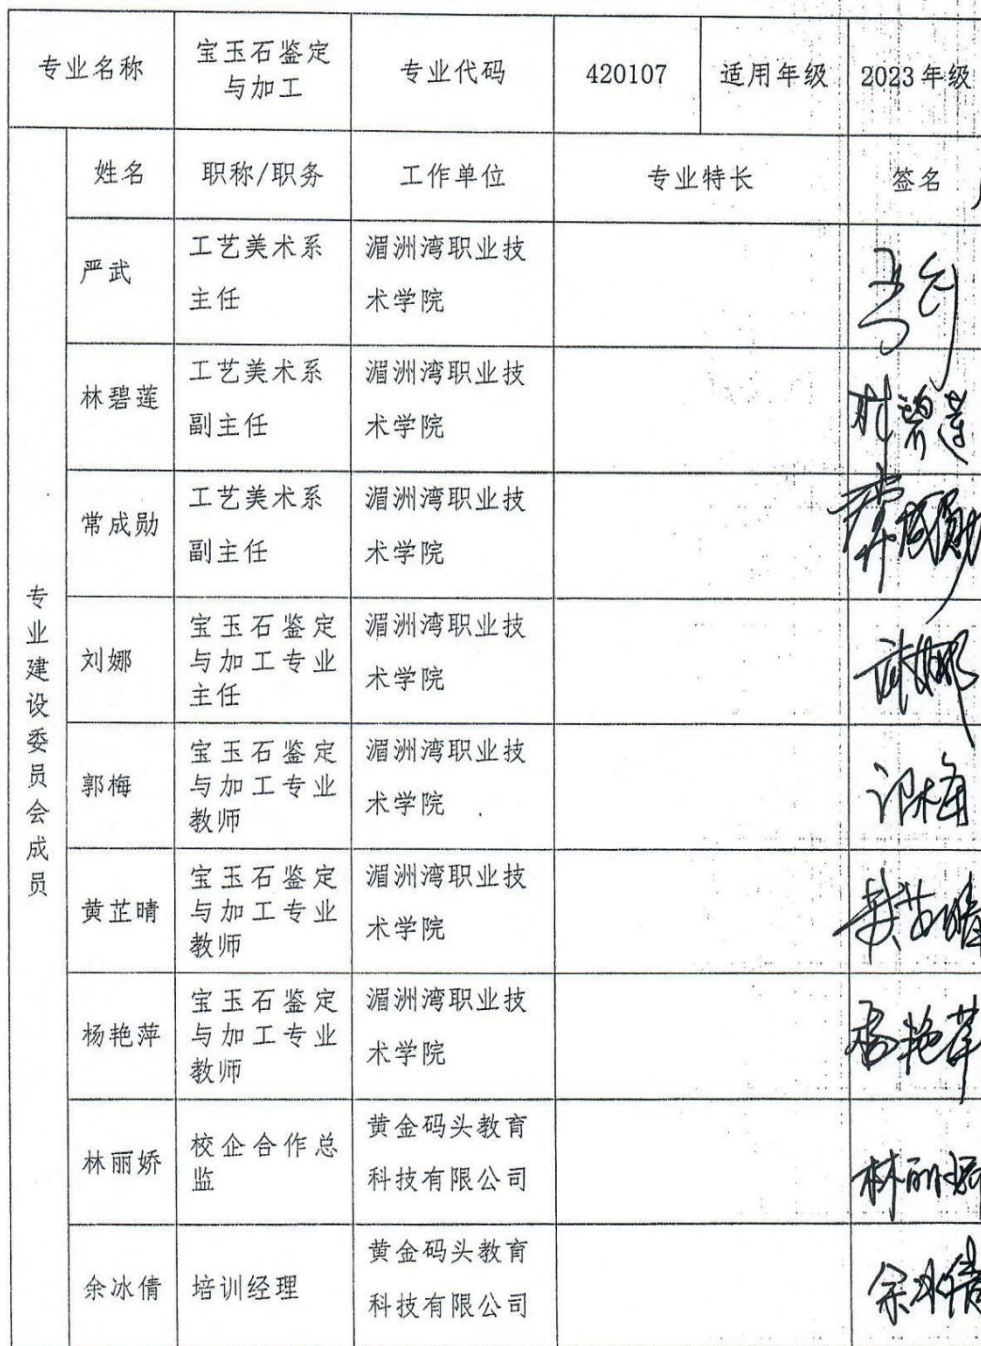 专业名称
宝玉石鉴定
与加工
专业代码
420107
适用年级
2023年级
专业建设委员会成员
姓名
职称/职务
工作单位
专业特长
签名
严武
工艺美术系
主任
湄洲湾职业技
术学院
林碧莲
工艺美术系
副主任
湄洲湾职业技
术学院
林碧莲
常成勋
工艺美术系
副主任
湄洲湾职业技
术学院
常成勋
刘娜
宝玉石鉴定
与加工专业
主任
湄洲湾职业技
术学院
郭梅
宝玉石鉴定
与加工专业
教师
湄洲湾职业技
术学院
黄芷晴
宝玉石鉴定
与加工专业
教师
湄洲湾职业技
术学院
黄芷晴
杨艳萍
宝玉石鉴定
与加工专业
教师
湄洲湾职业技
术学院
杨艳萍
林丽娇
校企合作总
监
黄金码头教育
科技有限公司
林丽娇
余冰倩
培训经理
黄金码头教育
科技有限公司
余冰倩